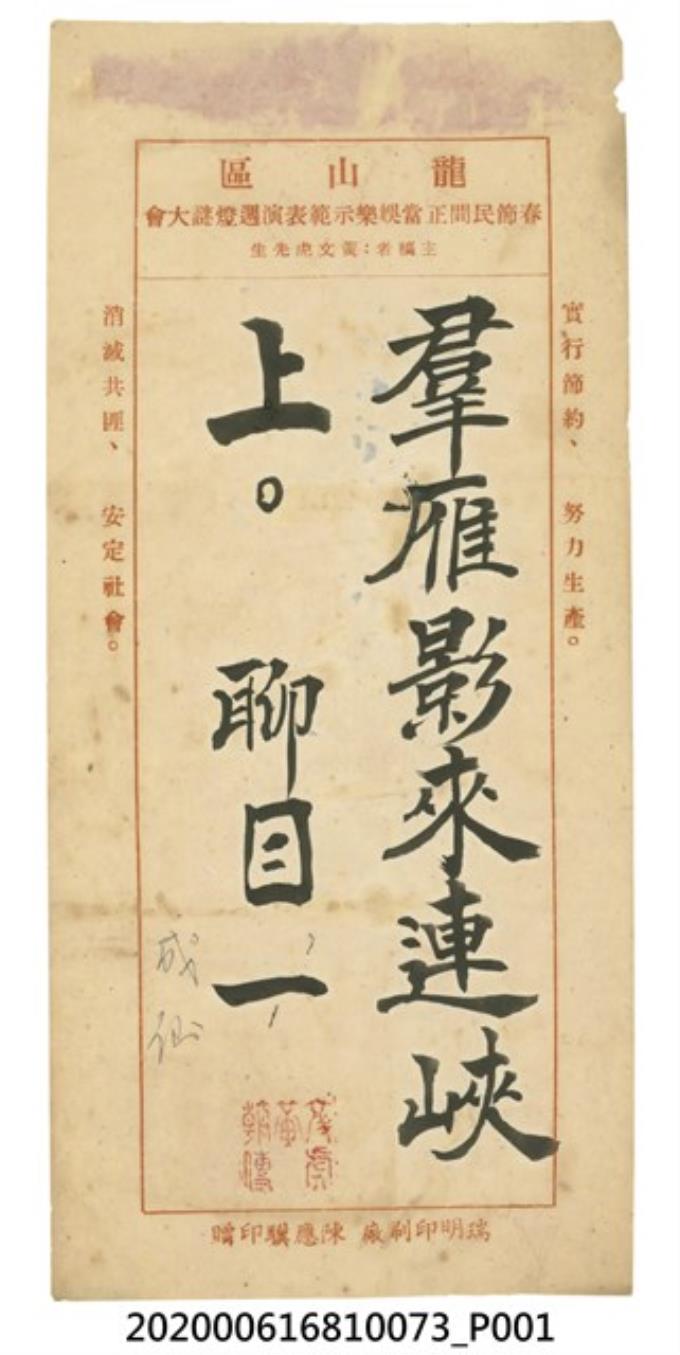 龍山區
春節民間正當娛樂示範表演週燈謎大會
主稿者：黃文虎先生
實行節約、 努力生產。
羣雁影來連峽
上。 聊目一
成仙
消滅共匪、 安定社會。
瑞明印刷廠 陳應騏印贈
202000616810073_P001